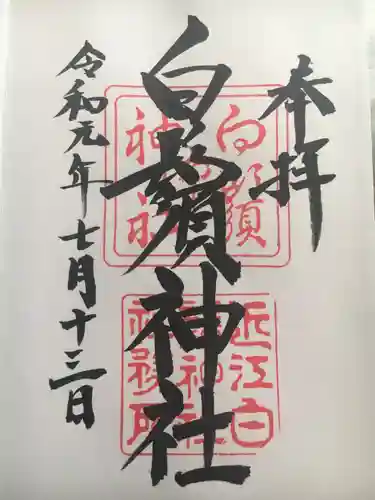 奉拝
白鬚神社
令和元年七月十三日
白鬚神社
近江白鬚神社社務所